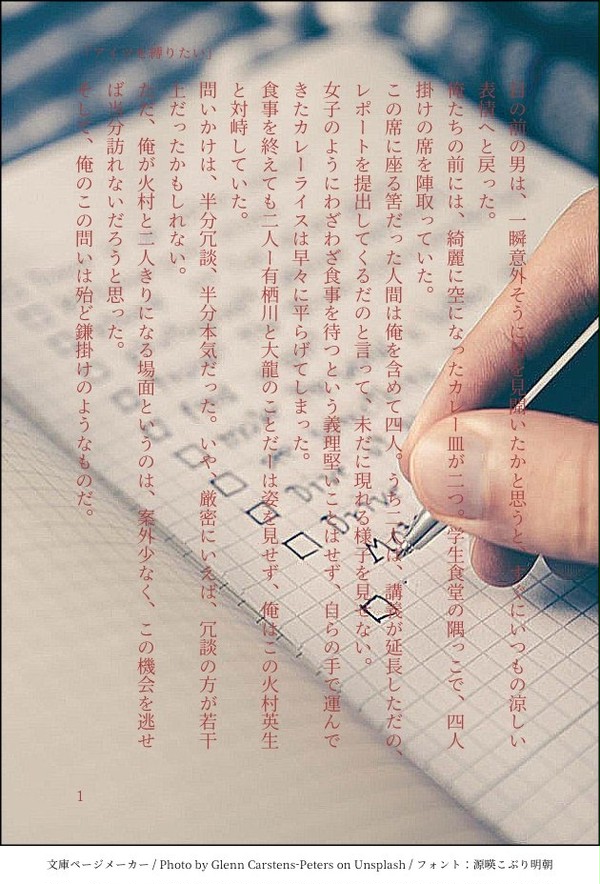 「アイツを縛りたい」
目の前の男は、一瞬意外そうに目を見開いたかと思うと、すぐにいつもの涼しい
表情へと戻った。
俺たちの前には、綺麗に空になったカレー皿が二つ。学生食堂の隅っこで、四人
掛けの席を陣取っていた。
この席に座る筈だった人間は俺を含めて四人。うち二人は、講義が延長しただの、
レポートを提出してくるだのと言って、未だに現れる様子を見せない。
女子のようにわざわざ食事を待つという義理堅いことはせず、自らの手で運んで
きたカレーライスは早々に平らげてしまった。
食事を終えても二人ー有栖川と大龍のことだーは姿を見せず、俺はこの火村英生
と対峙していた。
問いかけは、半分冗談、半分本気だった。いや、厳密にいえば、冗談の方が若干
上だったかもしれない。
ただ、俺が火村と二人きりになる場面というのは、案外少なく、この機会を逃せ
ば当分訪れないだろうと思った。
そして、俺のこの問いは殆ど鎌掛けのようなものだ。
1
文庫ページメーカー / Photo by Glenn Carstens-Peters on Unsplash / フォント：源暎こぶり明朝